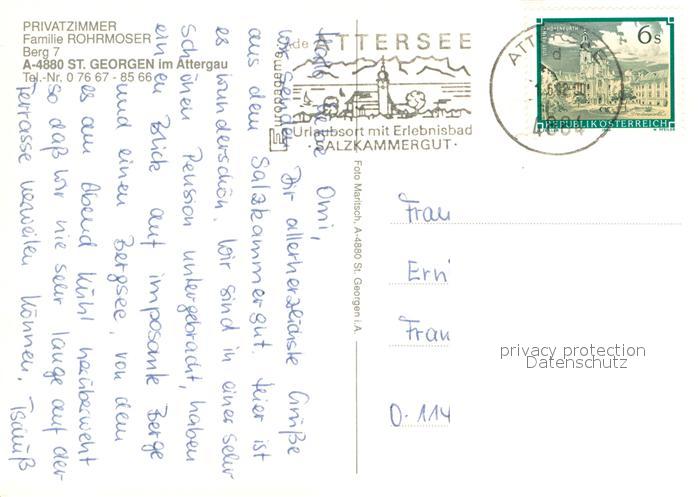 PRIVATZIMMER
Familie ROHRMOSER
Berg 7
A-4880 ST. GEORGEN im Attergau
Tel.-Nr. 0 76 67 - 85 66
ATTERSEE
Urlaubsort mit Erlebnisbad
SALZKAMMERGUT
ATTERSEE
4864
6s
REPUBLIK ÖSTERREICH
Omi,
wir senden Dir allerherzlichste Grüße
aus dem Salzkammergut. Hier ist
es wunderschön. Wir sind in einer sehr
schönen Pension untergebracht, haben
einen Blick auf imposante Berge
und einen Bergsee, von dem
es am Abend kühl herüberweht
so daß wir nie sehr lange auf der
Terrasse verweilen können. Tschüß
Foto Maritsch, A-4880 St. Georgen i.A.
Frau
Erni
Frau
D-114
privacy protection
Datenschutz